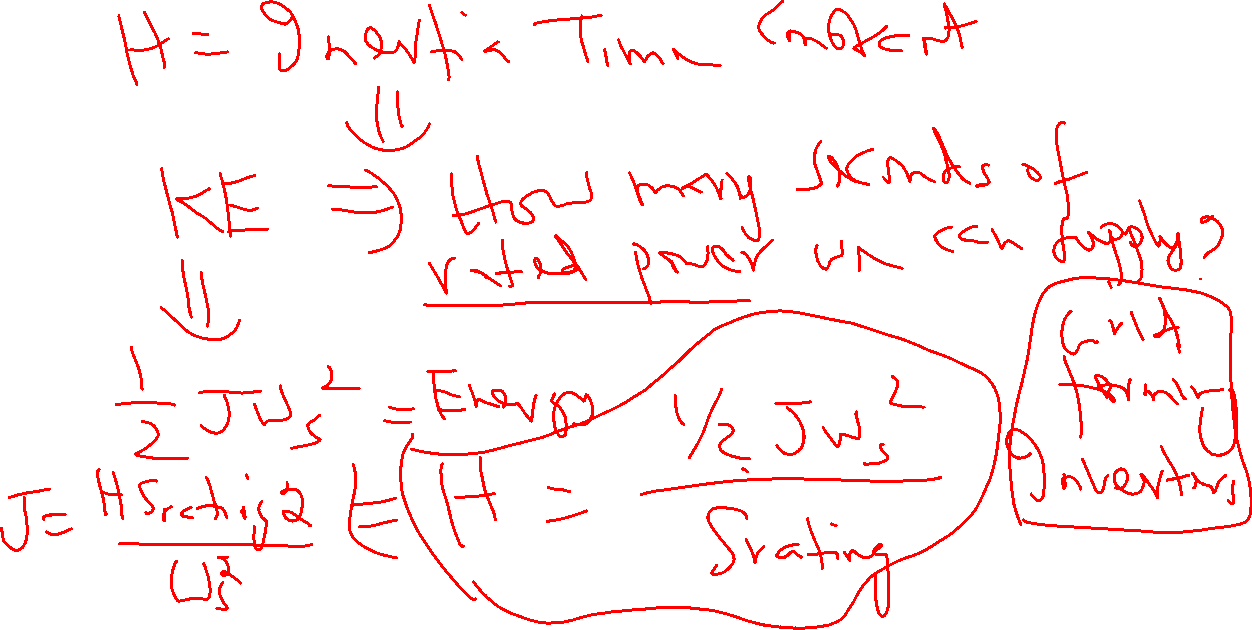 H = Inertia Time Constant
⇓
KE ⇒ How many seconds of
rated power we can supply?
⇓
1/2 Jωs² = Energy
H = 1/2 Jωs² / Srating
J = H Srating 2 / ωs² ⇐
Grid
forming
Inverters